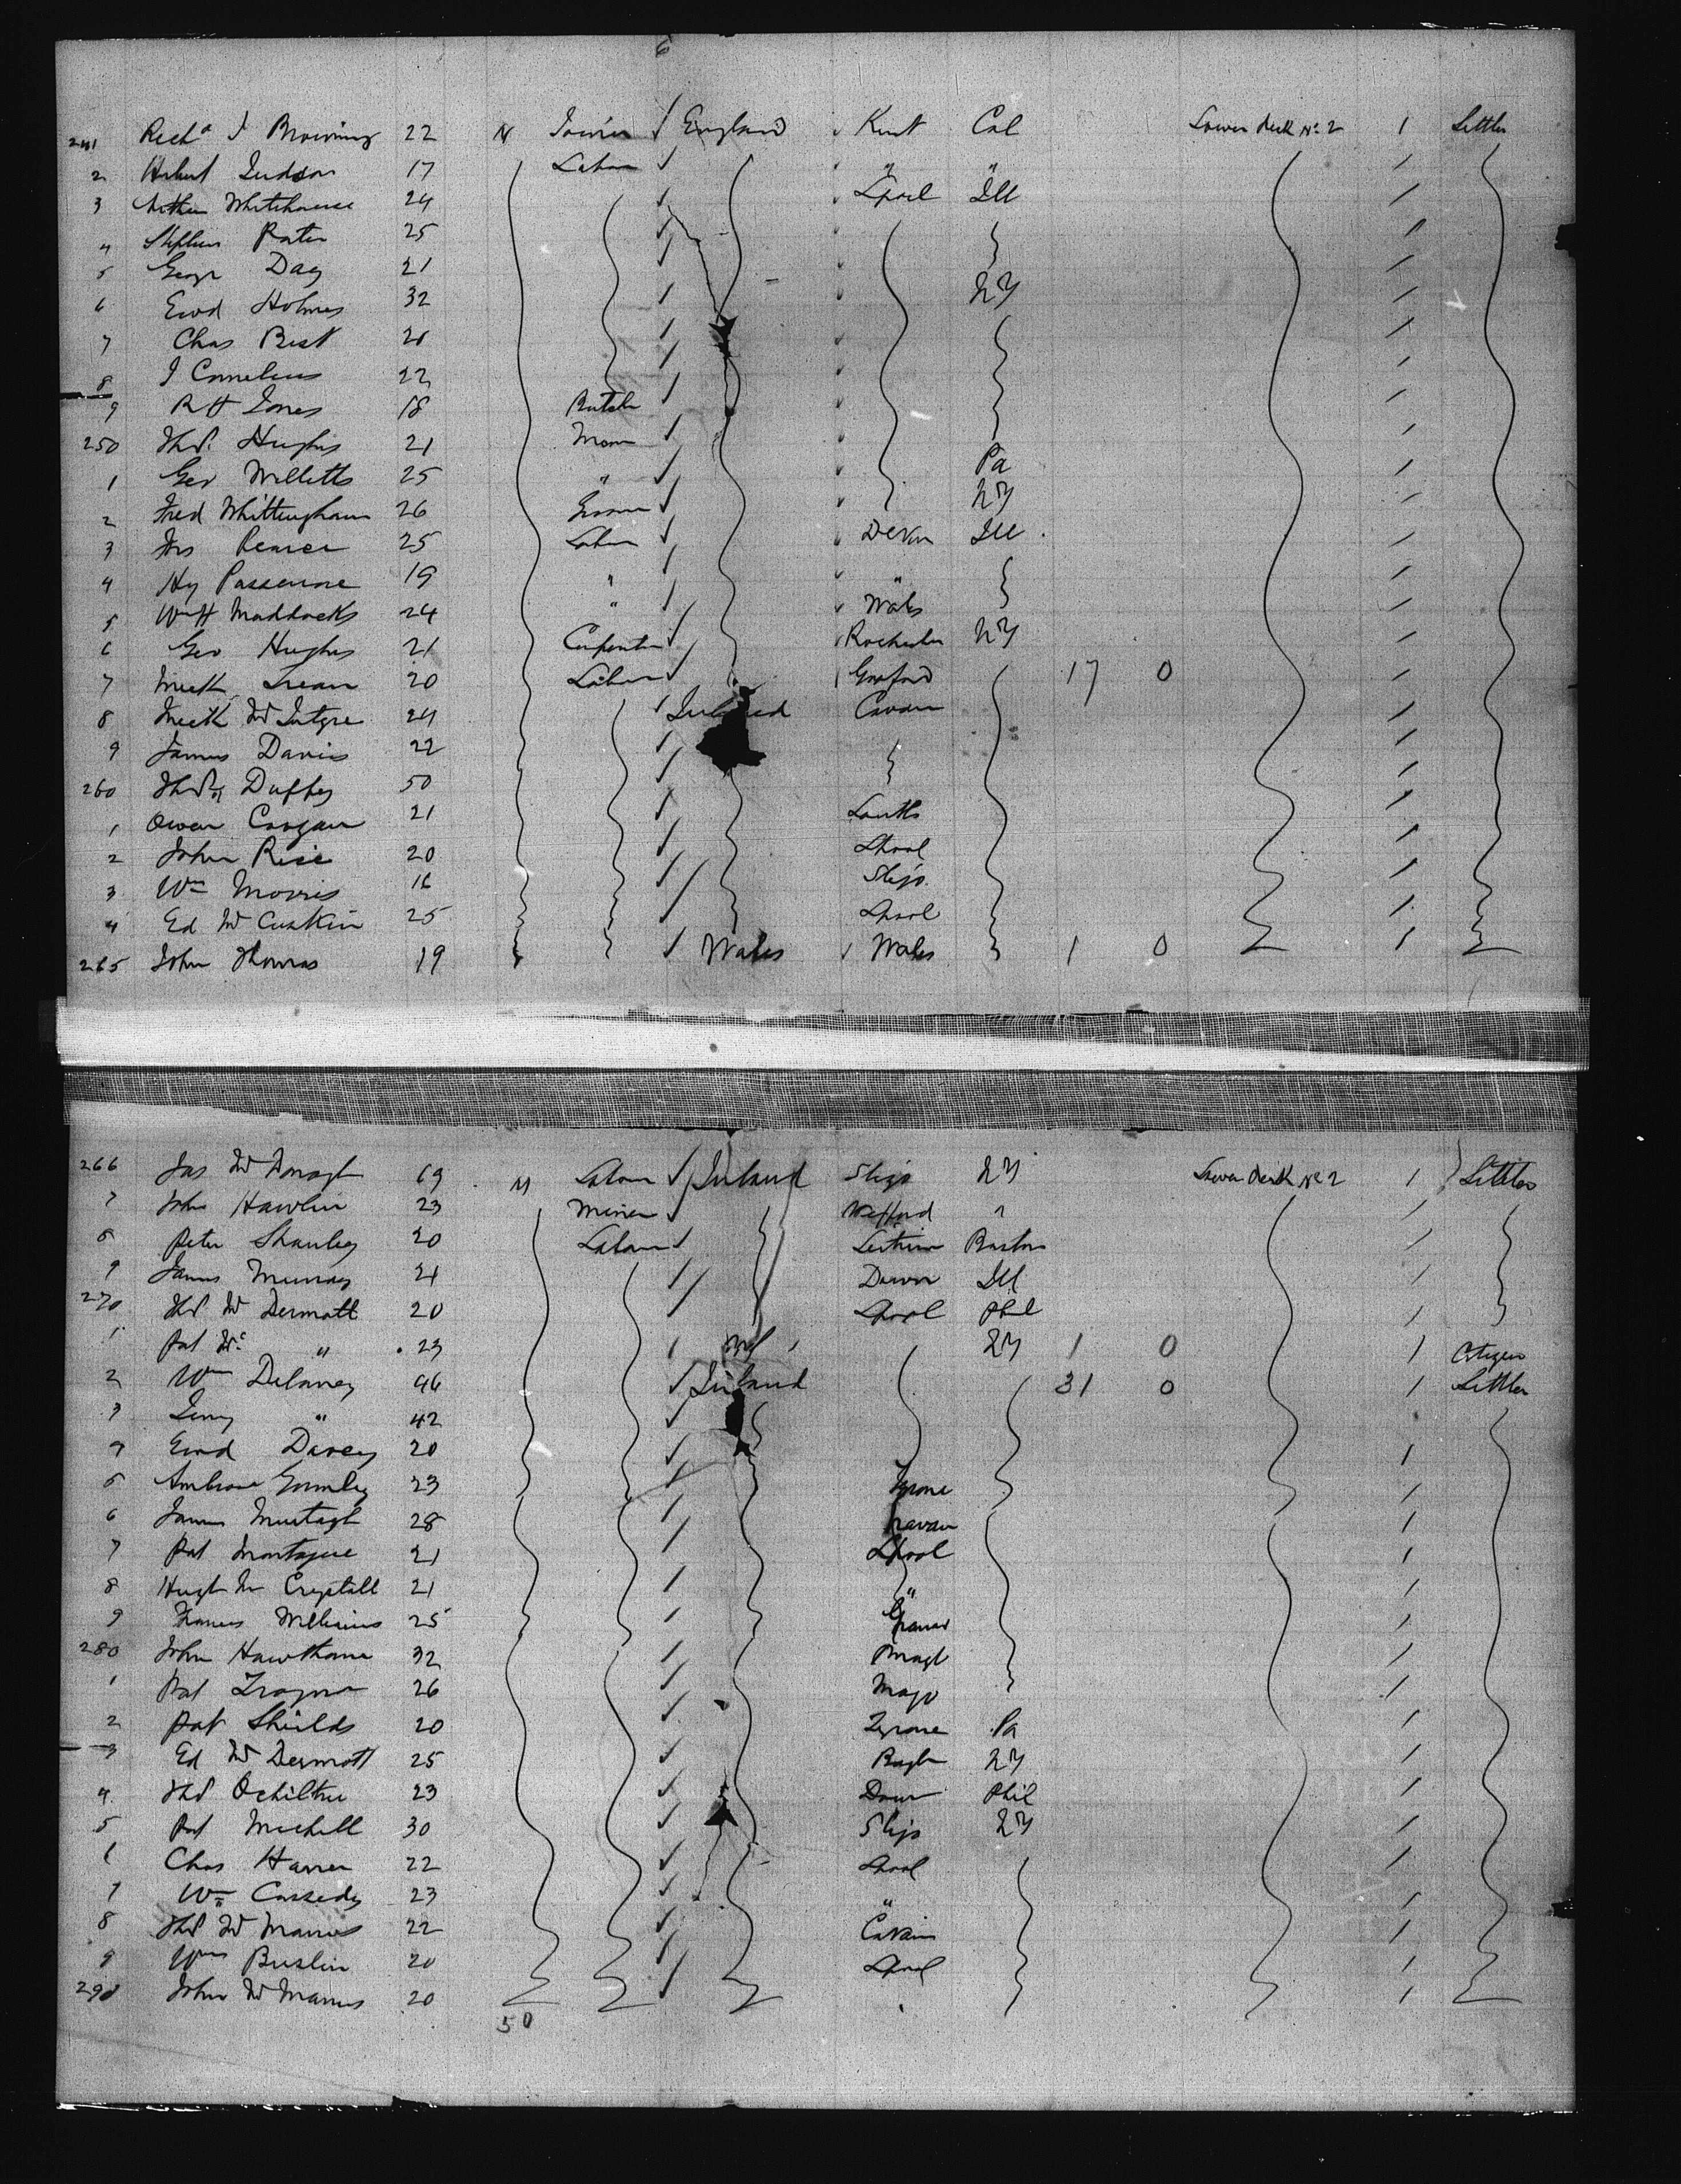 241 Rich^d J Browning 22 N Joiner England Kent Cal Lower deck No 2 1 Settler
2 Herbert Judson 17 Labour " "
3 Arthur Whitehouse 24 Lpool Ill
4 Stephen Porter 25
5 George Day 21
6 Ewd Holmes 32 NY
7 Chas Best 21
8 J Cornelius 22
9 R H Jones 18 Butch
250 Thos Hughes 21 Mason
1 Geo Willetts 25 " Pa
2 Fred Whittingham 26 Groom NY
3 Jas Pearce 25 Labour Devon Ill
4 Hy 19 " "
5 Wm H Maddocks 24 " Wales
6 Geo Hughes 21 Carpenter Rochester NY
7 20 Labour 17 0
8 McIntyre 24 Ireland Cavan
9 James Davis 22
260 Thos Duffey 50
1 Owen Coogan 21 Louth
2 John Rice 20 Lpool
3 Wm Morris 16 Sligo
4 Ed Mc 25 Lpool
265 John Thomas 19 Wales Wales 1 0 1
266 Jas McDonagh 19 M Labour Ireland Sligo NY Lower deck No 2 1 Settler
7 John Hawlin 23 Miner Wexford "
8 Peter Shanley 20 Labour Leitrim Boston
9 James Murray 21 Down Ill
270 Thos McDermott 20 Lpool Phil
1 Pat Mc " 23 NY 1 0 1 Citizen
2 Wm Delaney 46 Ireland 31 0 1 Settler
3 " 42
4 Ewd Davey 20
5 Ambrose Gormley 23 Tyrone
6 James Murtagh 28 Cavan
7 Pat Montague 21 Lpool
8 Hugh Mc Crystall 21 "
9 Francis Williams 25
280 John Hawthorne 32
1 Pat 26 Mayo
2 Pat Shields 20 Tyrone Pa
3 Ed McDermott 25 NY
4 Thos Ochiltree 23 Down Phil
5 Pat Michell 30 Sligo NY
6 Chas 22 Lpool
7 Wm Cassedy 23 "
8 Thos McManus 22 Cavan
9 Wm Buslin 20 Lpool
290 John McManus 20
50